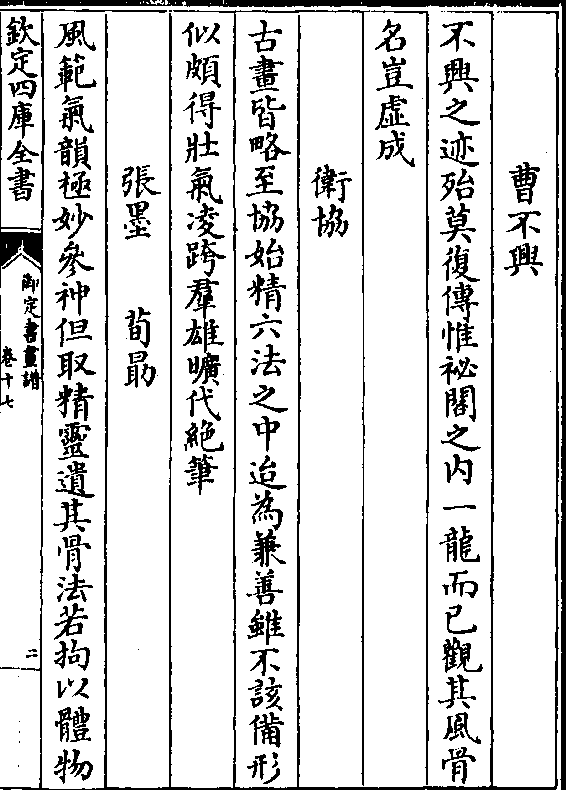 曹不興
不興之迹殆莫復傳惟祕閣之内一龍而已觀其風骨
名豈虛成
衛協
古畫皆略至協始精六法之中迨為兼善雖不該備形
似頗得壯氣凌跨羣雄曠代絶筆
張墨　荀勗
風範氣韻極妙參神但取精靈遺其骨法若拘以體物
欽定四庫全書
御定書畫譜
卷十七
二